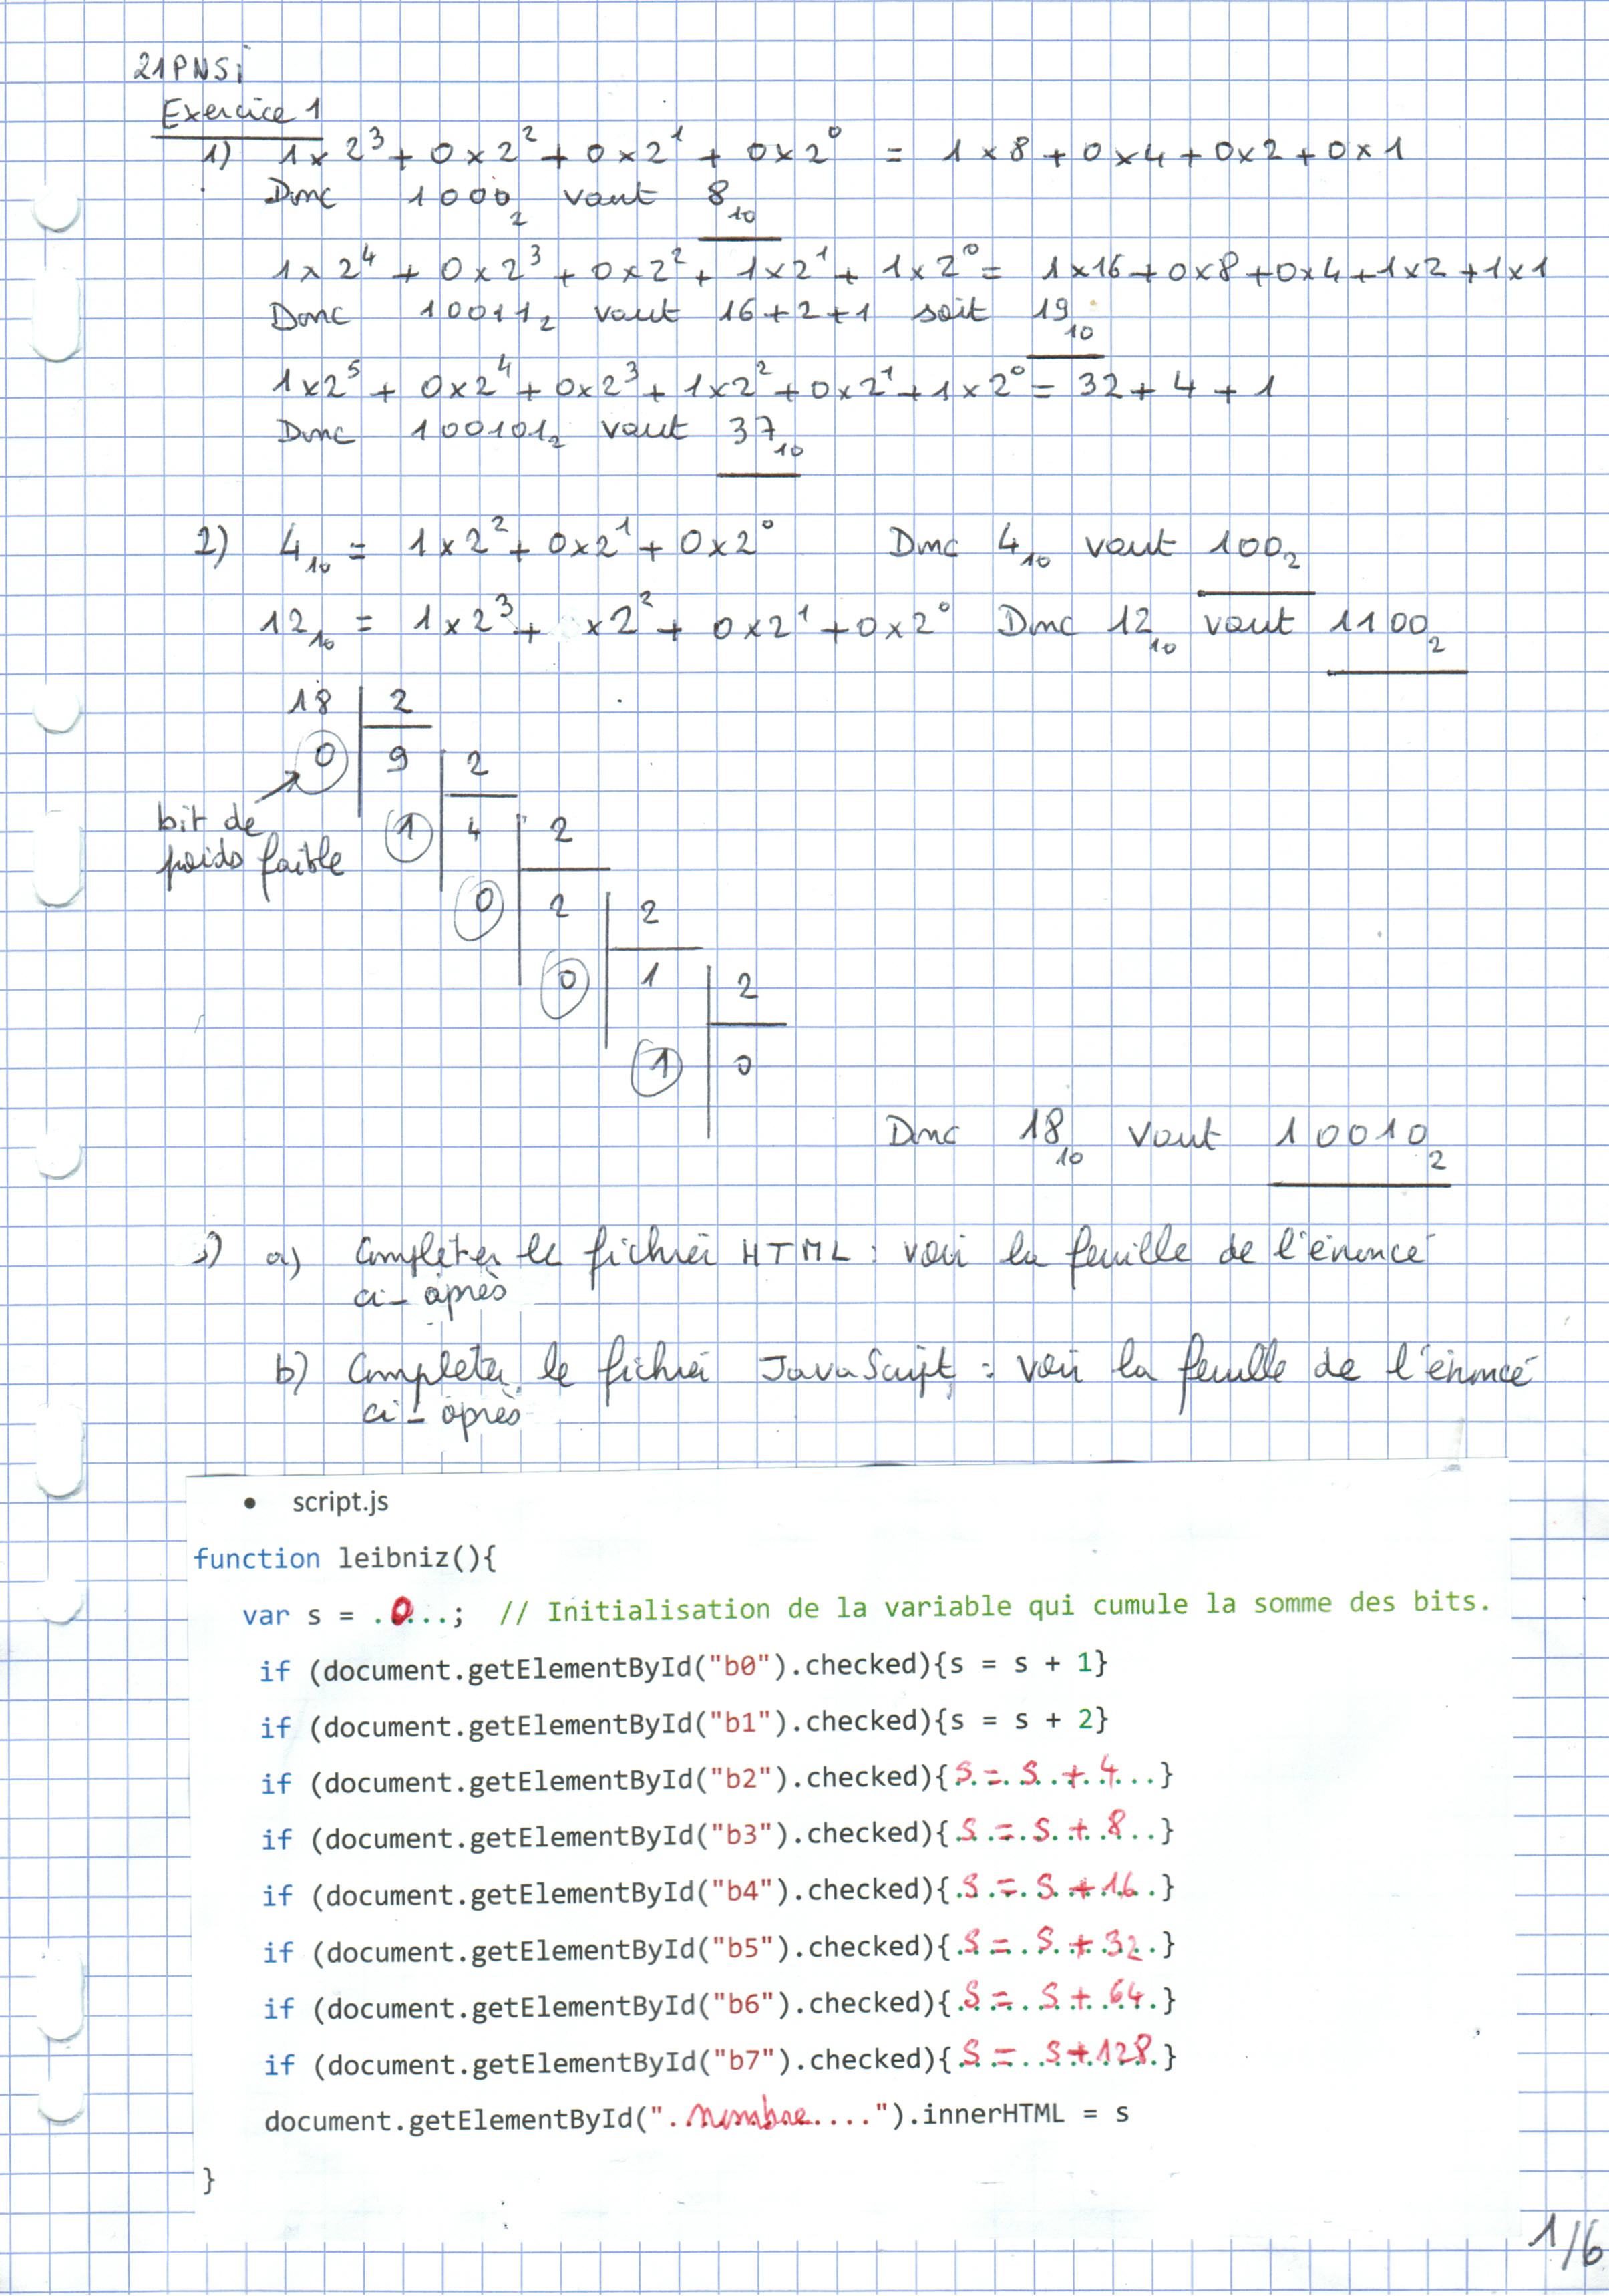 21PNSi
Exercice 1
1) 1 x 2³ + 0 x 2² + 0 x 2¹ + 0 x 2⁰ = 1 x 8 + 0 x 4 + 0 x 2 + 0 x 1
Donc 1000₂ vaut 8₁₀
1 x 2⁴ + 0 x 2³ + 0 x 2² + 1 x 2¹ + 1 x 2⁰ = 1 x 16 + 0 x 8 + 0 x 4 + 1 x 2 + 1 x 1
Donc 10011₂ vaut 16 + 2 + 1 soit 19₁₀
1 x 2⁵ + 0 x 2⁴ + 0 x 2³ + 1 x 2² + 0 x 2¹ + 1 x 2⁰ = 32 + 4 + 1
Donc 100101₂ vaut 37₁₀
2) 4₁₀ = 1 x 2² + 0 x 2¹ + 0 x 2⁰ Donc 4₁₀ vaut 100₂
12₁₀ = 1 x 2³ + x 2² + 0 x 2¹ + 0 x 2⁰ Donc 12₁₀ vaut 1100₂
18 2
0 9 2
bit de 1 4 2
poids faible
0 2 2
0 1 2
1 0
Donc 18₁₀ vaut 10010₂
3) a) Compléter le fichier HTML : voir la feuille de l'énoncé
ci-après
b) Compléter le fichier JavaScript : voir la feuille de l'énoncé
ci-après
• script.js
function leibniz(){
var s = .0...; // Initialisation de la variable qui cumule la somme des bits.
if (document.getElementById("b0").checked){s = s + 1}
if (document.getElementById("b1").checked){s = s + 2}
if (document.getElementById("b2").checked){s = s + 4...}
if (document.getElementById("b3").checked){s = s + 8..}
if (document.getElementById("b4").checked){.s = s + 16.}
if (document.getElementById("b5").checked){.s = s + 32.}
if (document.getElementById("b6").checked){.s = s + 64.}
if (document.getElementById("b7").checked){.s = s + 128.}
document.getElementById(".nombre....").innerHTML = s
}
1/6